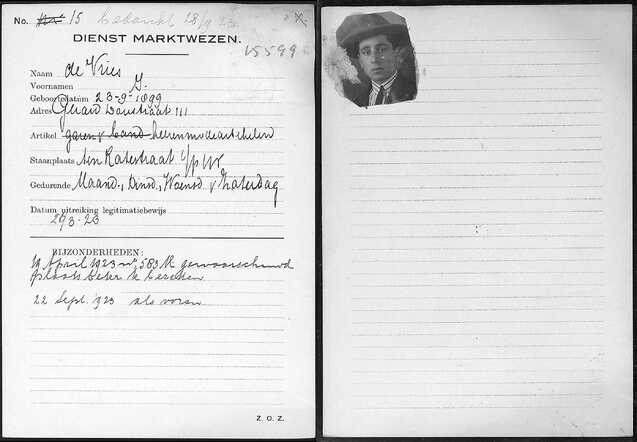 No. 15 Bedankt 28/9 23
DIENST MARKTWEZEN.
V5599
Naam de Vries
Voornamen J.
Geboortedatum 23-9-1899
Adres Gerard Doustraat 111
Artikel garen & band heerenmodeartikelen
Staanplaats ten Katestraat
Gedurende Maand., Dinsd., Woensd & Zaterdag
Datum uitreiking legitimatiebewijs
29 3-23
BIJZONDERHEDEN:
19 April 1923 no 583 M gewaarschuwd
plaats beter te bezetten
22 Sept. 1923 als voren
Z. O. Z.